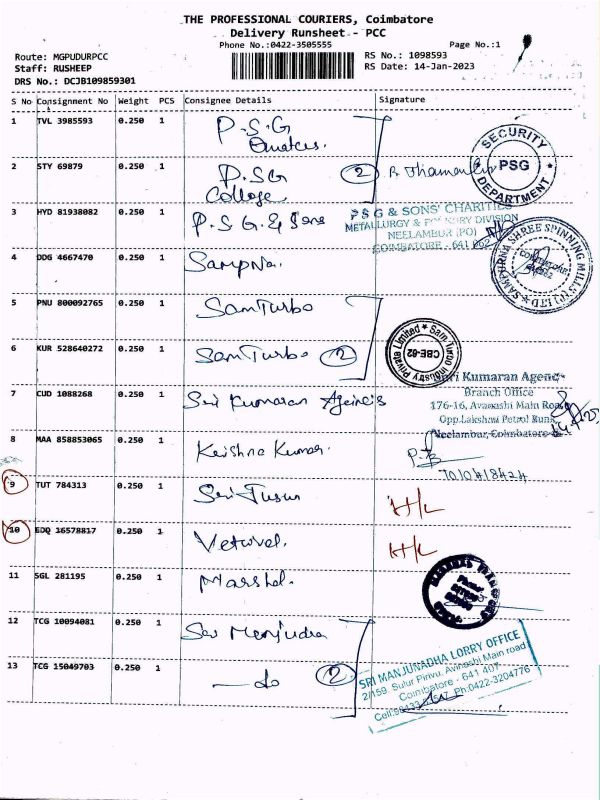 THE PROFESSIONAL COURIERS, Coimbatore
Delivery Runsheet - PCC
Phone No.:0422-3505555
Page No.:1
Route: MGPUDURPCC
Staff: RUSHEEP
DRS No.: DCJB109859301
RS No.: 1098593
RS Date: 14-Jan-2023
S No Consignment No Weight PCS Consignee Details Signature
1 TVL 3985593 0.250 1 P.S.G
2 STY 69879 0.250 1 P.SG College 2
SECURITY DEPARTMENT PSG
3 HYD 81938082 0.250 1 P.S G. & Sons
PSG & SONS' CHARITIES
METALLURGY & FOUNDRY DIVISION
NEELAMBUR (PO)
COIMBATORE - 641 062
4 DDG 4667470 0.250 1 Sampna.
SAMPURNA SHREE SPINNING MILLS (P) LTD
5 PNU 800092765 0.250 1 Sam Turbo
6 KUR 528640272 0.250 1 Sam Turbo 2
Sam Turbo Industry Private Limited
CBE-62
7 CUD 1088268 0.250 1 Sri Kumaran Ageincis
Sri Kumaran Agency
Branch Office
176-16, Avanashi Main Road
Opp.Lakshmi Petrol Bunk
Neelambur, Coimbatore
8 MAA 858853065 0.250 1 Krishna Kumar.
9 TUT 784313 0.250 1 Sri
10 EDQ 16578817 0.250 1 Vetrivel.
11 SGL 281195 0.250 1 Marshal.
12 TCG 10094081 0.250 1 Sri Menjudra
13 TCG 15049703 0.250 1 —do 2
SRI MANJUNADHA LORRY OFFICE
2/159, Sulur Pirivu, Avinashi Main road
Coimbatore - 641 407
Ph:0422-3204776